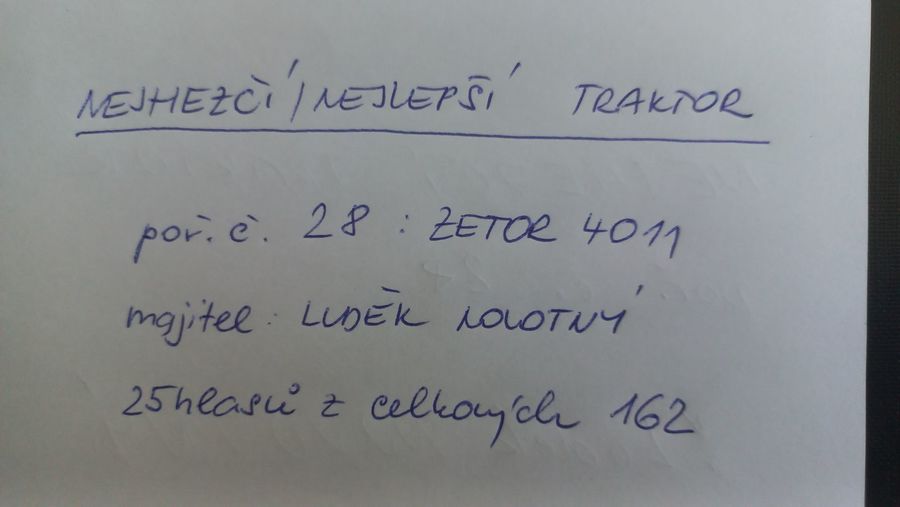 NEJHEZČÍ/NEJLEPŠÍ TRAKTOR
poř. č. 28 : ZETOR 4011
majitel: LUDĚK NOVOTNÝ
25 hlasů z celkových 162